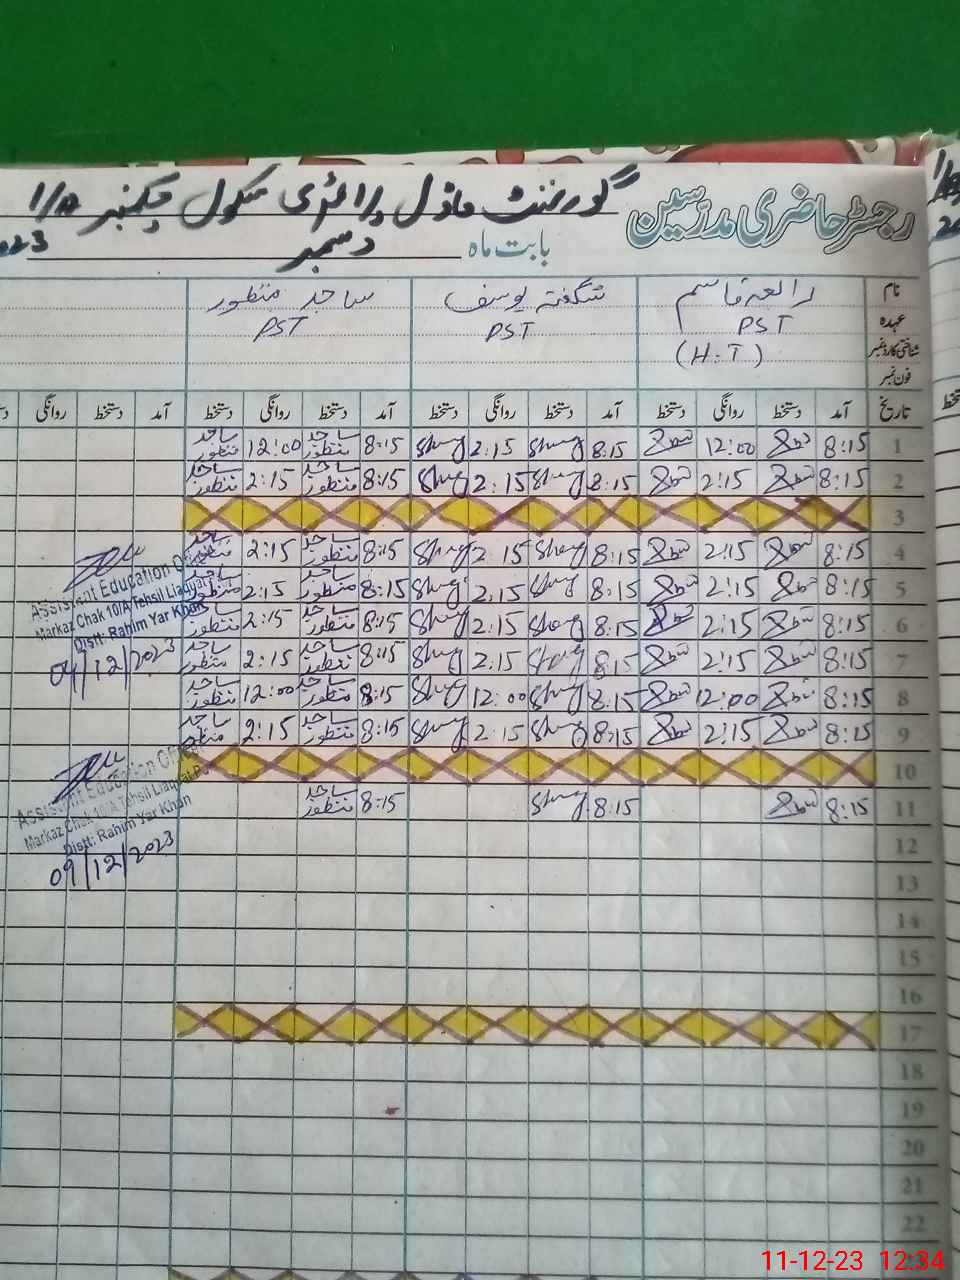 رجسٹر حاضری مدرسین گورنمنٹ ماڈل پرائمری سکول چکنمبر 1/A
بابت ماہ دسمبر 2023
نام رابعہ قاسم شگفتہ یوسف ساجد منظور
عہدہ PST PST PST
شناختی کارڈ نمبر (H.T)
فون نمبر
تاریخ آمد دستخط روانگی دستخط آمد دستخط روانگی دستخط آمد دستخط روانگی دستخط آمد دستخط روانگی
1 8:15 12:00 8:15 Shug 2:15 Shug 8:15 ساجد منظور 12:00 ساجد منظور
2 8:15 2:15 8:15 Shug 2:15 Shug 8:15 ساجد منظور 2:15 ساجد منظور
3
4 8:15 2:15 8:15 Shug 2:15 Shug 8:15 ساجد منظور 2:15 ساجد منظور
5 8:15 2:15 8:15 Shug 2:15 Shug 8:15 ساجد منظور 2:15 ساجد منظور
6 8:15 2:15 8:15 Shug 2:15 Shug 8:15 ساجد منظور 2:15 ساجد منظور
7 8:15 2:15 8:15 Shug 2:15 Shug 8:15 ساجد منظور 2:15 ساجد منظور
8 8:15 12:00 8:15 Shug 12:00 Shug 8:15 ساجد منظور 12:00 ساجد منظور
9 8:15 2:15 8:15 Shug 2:15 Shug 8:15 ساجد منظور 2:15 ساجد منظور
10
11 8:15 8:15 Shug 8:15 ساجد منظور
12
13
14
15
16
17
18
19
20
21
22
Assistant Education Officer
Markaz Chak 10/A Tehsil Liaquat
Distt: Rahim Yar Khan
04/12/2023
Assistant Education Officer
Markaz Chak 10/A Tehsil Liaquat Pur
Distt: Rahim Yar Khan
09/12/2023
11-12-23 12:34